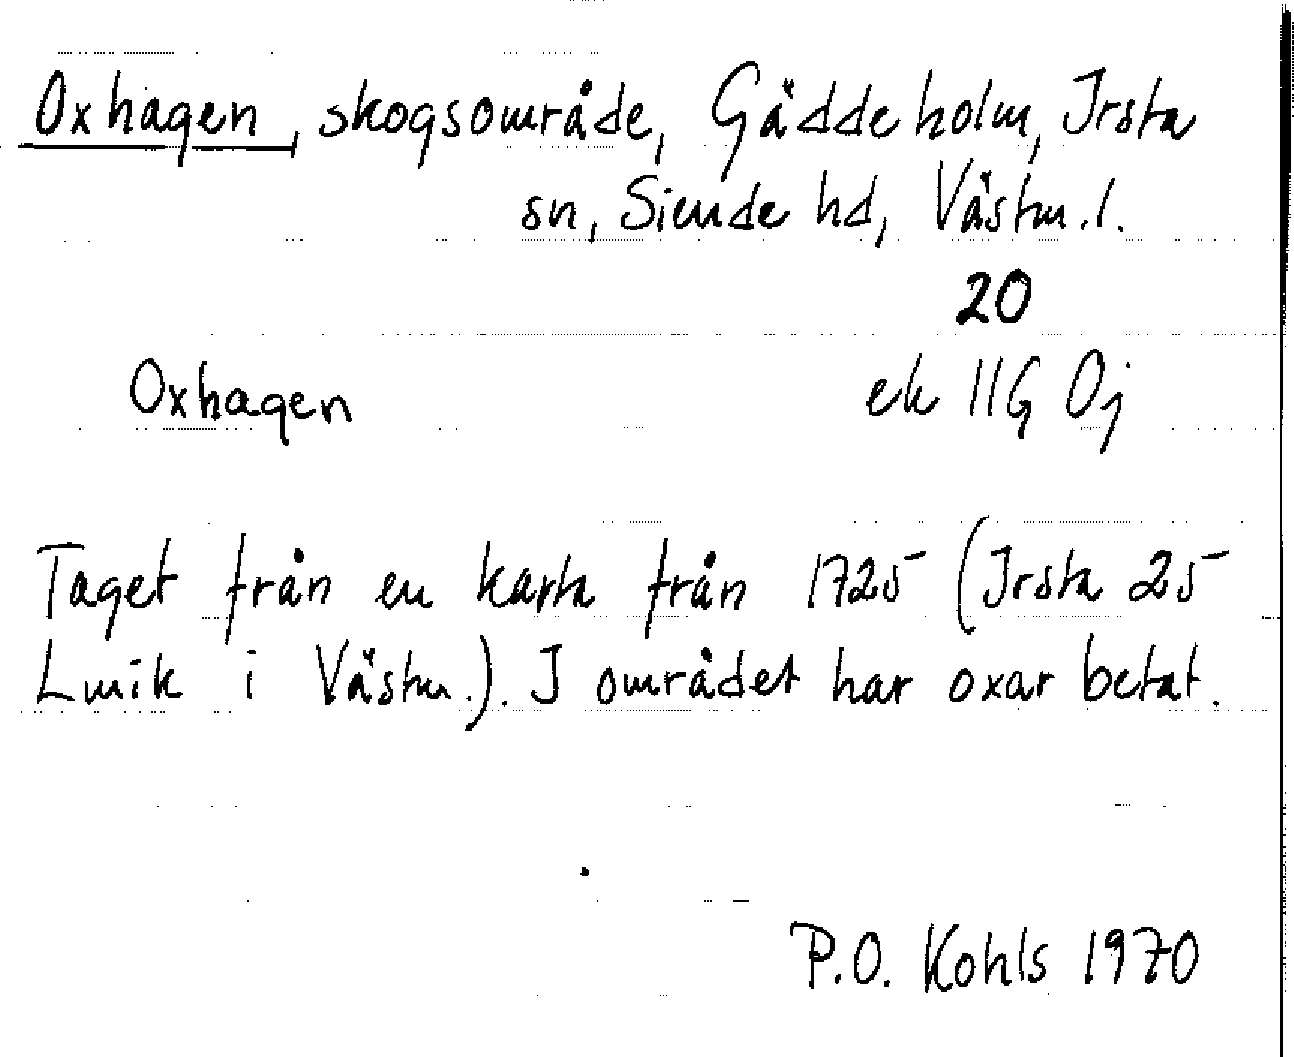 Oxhagen, skogsområde, Gäddeholm, Irsta
sn, Siende hd, Västm.l.
20
Oxhagen ek 11G 0j
Taget från en karta från 1725 (Irsta 25
Lmik i Västm.). I området har oxar betat.
P.O. Kohls 1970